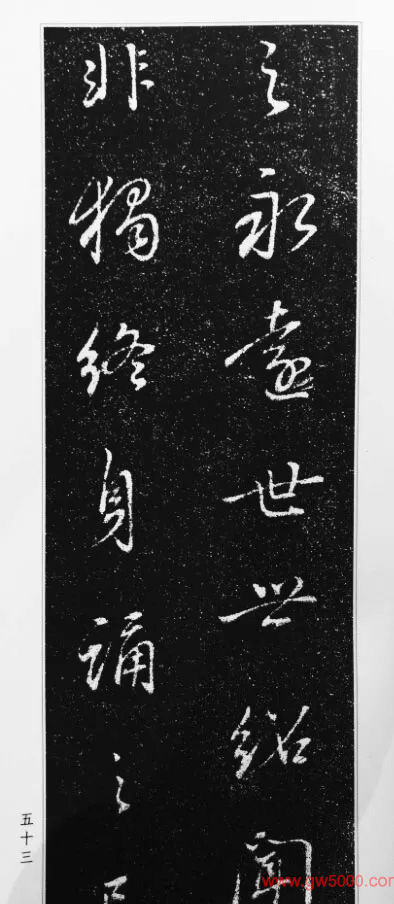 之永遠世世紹聞
非獨終身誦之
五十三
www.gw5000.com